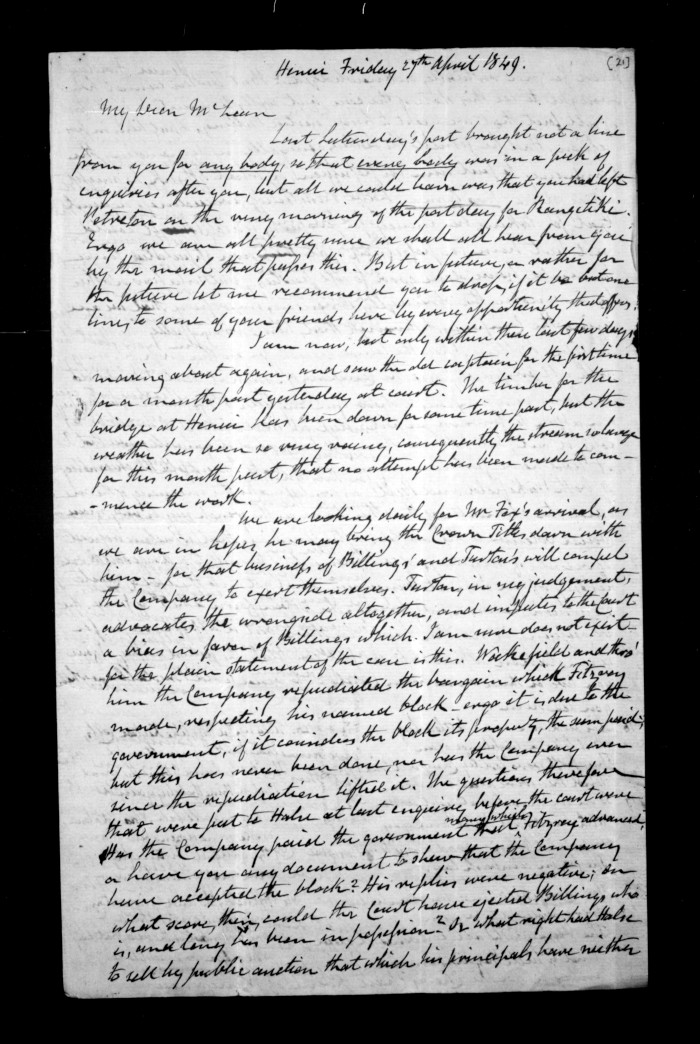 Henui Friday 27th April 1849.
(21)
My Dear McLean
Last Saturday's post brought not a line
from you for any body, so that every body was in a peck of
enquiries after you, but all we could learn was that you had left
Petreton on the very morning of the post day for Rangitiki.
Ergo we are all pretty sure we shall all hear from you
by the mail that passes this. But in future, or rather for
the future let me recommend you to drop, if it be but one
line, to some of your friends here by every opportunity that offers.
I am now, but only within these last few days,
moving about again, and saw the old captain for the first time
for a month past yesterday at court. The timber for the
bridge at Henui has been down for some time past, but the
weather has been so very rainy, consequently the stream so large
for this month past, that no attempt has been made to com-
-mence the work.
We are looking daily for Mr Fox's arrival, as
we are in hopes he may bring the Crown Titles down with
him - for that business of Billings' and Turton's will compel
the Company to exert themselves. Turton, in my judgement,
advocates the wrong side altogether, and imputes to the Court
a bias in favor of Billings which I am sure does not exist
for the plain statement of the case is this. Wakefield and thro'
him the Company repudiated the bargain which Fitzroy
made, respecting his named block - ergo it is due to the
government, if it considers the block its property, the sum paid;
but this has never been done, nor has the Company ever
since the repudiation lifted it. The questions therefore
that were put to Halse at last enquire, before the court were
Has the Company paid the government money which Fitzroy advanced,
or have you any document to shew that the Company
have accepted the block? His replies were negative; on
what score, then, could the Court have ejected Billings who
is, and long has been in possession? Or what right had Halse
to sell by public auction that which his principals have neither